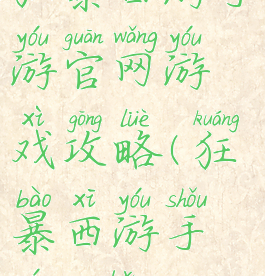 yóu guān wǎng yóu
游官网游
xì gōng lüè kuáng
戏攻略(狂
bào xī yóu shǒu
暴西游手